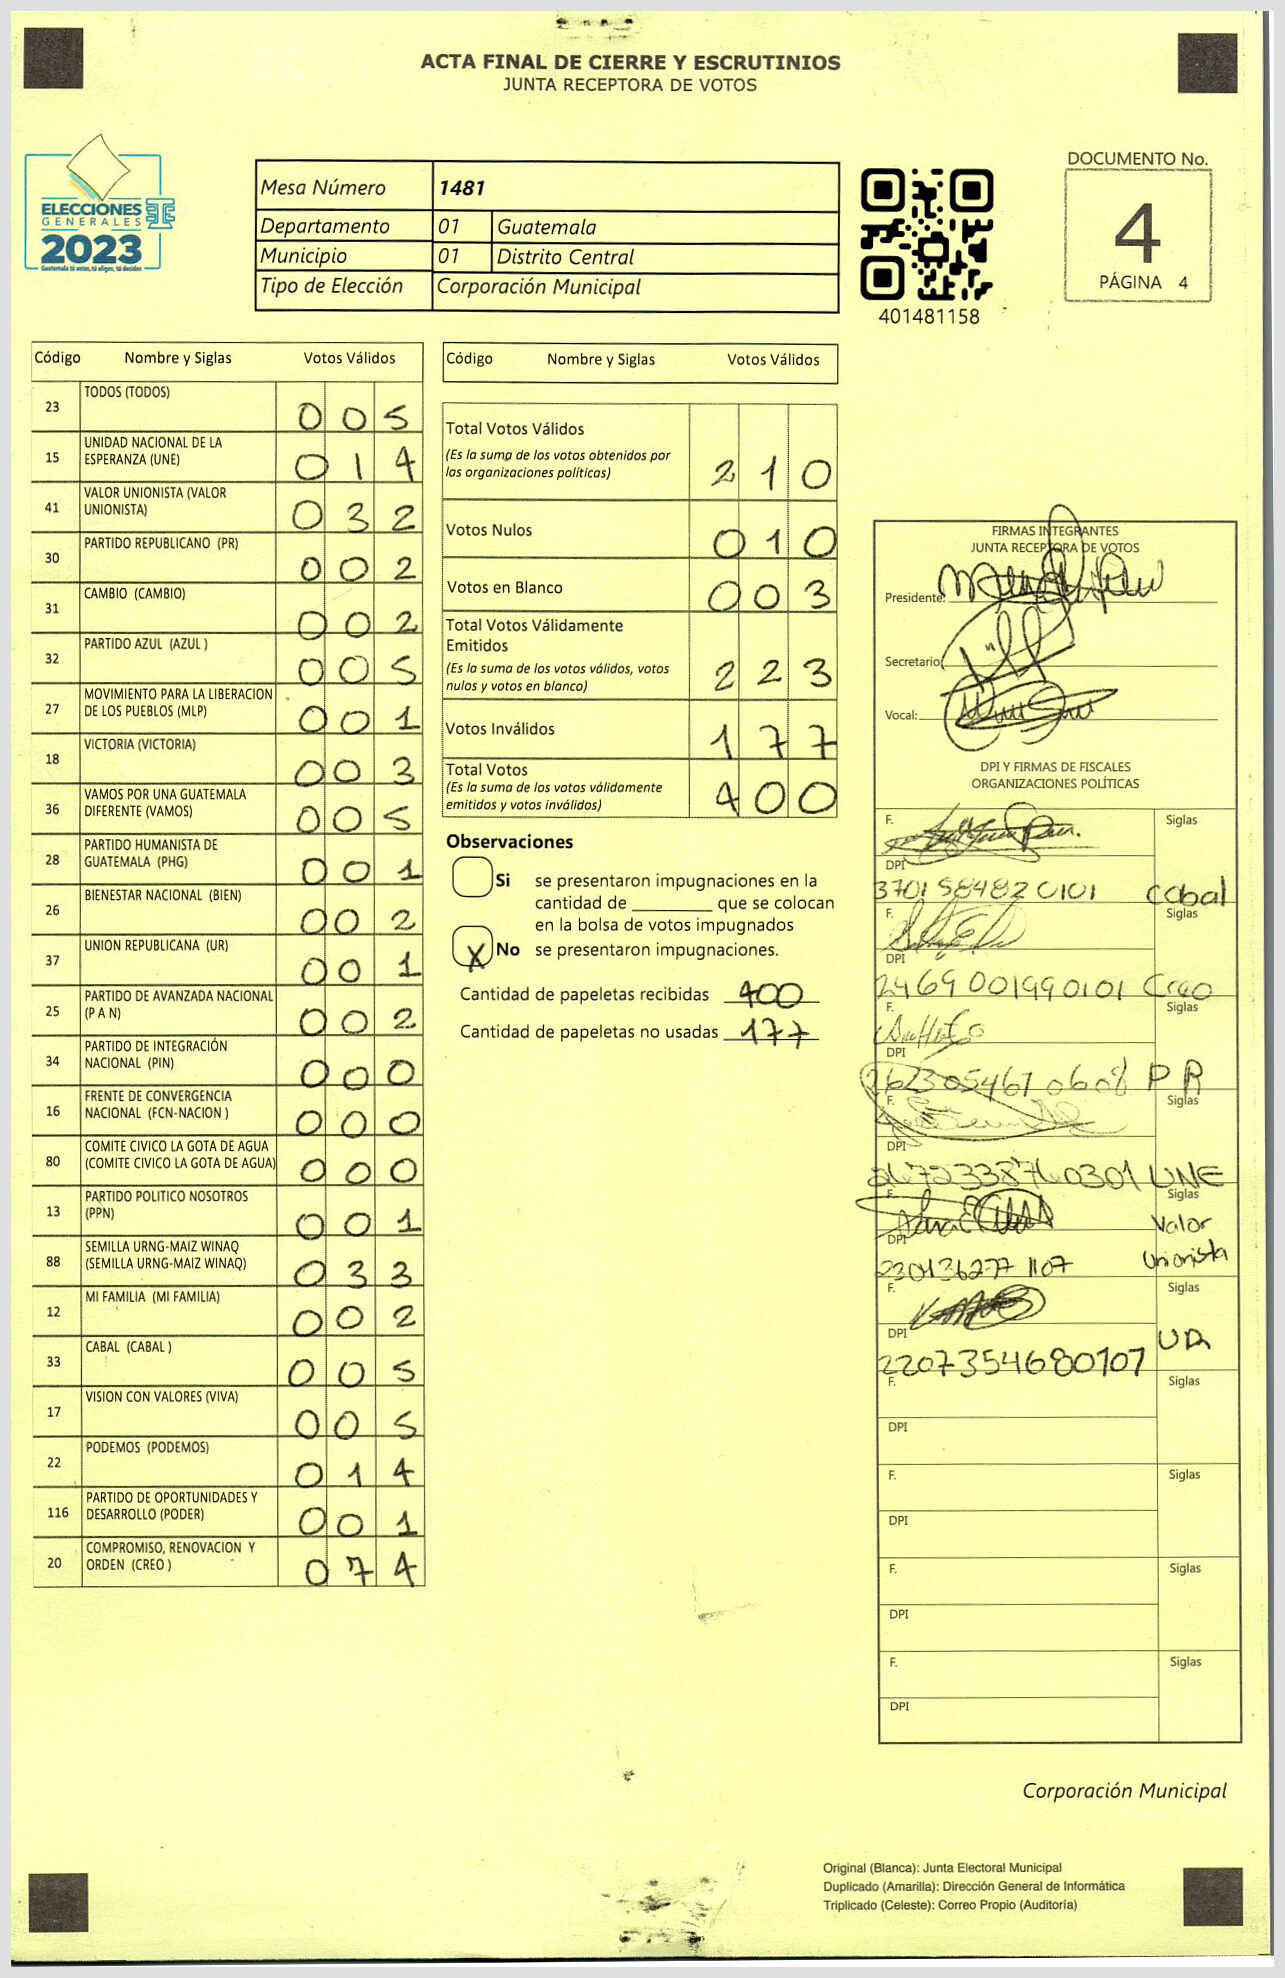 ACTA FINAL DE CIERRE Y ESCRUTINIOS
JUNTA RECEPTORA DE VOTOS
ELECCIONES
GENERALES
2023
Guatemala tú votas, tú eliges, tú decides
Mesa Número 1481
Departamento 01 Guatemala
Municipio 01 Distrito Central
Tipo de Elección Corporación Municipal
401481158
DOCUMENTO No.
4
PÁGINA 4
Código Nombre y Siglas Votos Válidos
23 TODOS (TODOS) 005
15 UNIDAD NACIONAL DE LA ESPERANZA (UNE) 014
41 VALOR UNIONISTA (VALOR UNIONISTA) 032
30 PARTIDO REPUBLICANO (PR) 002
31 CAMBIO (CAMBIO) 002
32 PARTIDO AZUL (AZUL ) 005
27 MOVIMIENTO PARA LA LIBERACION DE LOS PUEBLOS (MLP) 001
18 VICTORIA (VICTORIA) 003
36 VAMOS POR UNA GUATEMALA DIFERENTE (VAMOS) 005
28 PARTIDO HUMANISTA DE GUATEMALA (PHG) 001
26 BIENESTAR NACIONAL (BIEN) 002
37 UNION REPUBLICANA (UR) 001
25 PARTIDO DE AVANZADA NACIONAL (P A N) 002
34 PARTIDO DE INTEGRACIÓN NACIONAL (PIN) 000
16 FRENTE DE CONVERGENCIA NACIONAL (FCN-NACION ) 000
80 COMITE CIVICO LA GOTA DE AGUA (COMITE CIVICO LA GOTA DE AGUA) 000
13 PARTIDO POLITICO NOSOTROS (PPN) 001
88 SEMILLA URNG-MAIZ WINAQ (SEMILLA URNG-MAIZ WINAQ) 033
12 MI FAMILIA (MI FAMILIA) 002
33 CABAL (CABAL ) 005
17 VISION CON VALORES (VIVA) 005
22 PODEMOS (PODEMOS) 014
116 PARTIDO DE OPORTUNIDADES Y DESARROLLO (PODER) 001
20 COMPROMISO, RENOVACION Y ORDEN (CREO ) 074
Código Nombre y Siglas Votos Válidos
Total Votos Válidos
(Es la suma de los votos obtenidos por
las organizaciones políticas) 210
Votos Nulos 010
Votos en Blanco 003
Total Votos Válidamente
Emitidos
(Es la suma de los votos válidos, votos
nulos y votos en blanco) 223
Votos Inválidos 177
Total Votos
(Es la suma de los votos válidamente
emitidos y votos inválidos) 400
Observaciones
Si se presentaron impugnaciones en la
cantidad de ________ que se colocan
en la bolsa de votos impugnados
X No se presentaron impugnaciones.
Cantidad de papeletas recibidas 400
Cantidad de papeletas no usadas 177
FIRMAS INTEGRANTES
JUNTA RECEPTORA DE VOTOS
Presidente:
Secretario:
Vocal:
DPI Y FIRMAS DE FISCALES
ORGANIZACIONES POLÍTICAS
F. Siglas
DPI
3701584820101 Cabal
F. Siglas
DPI
2469001990101 Creo
F. Siglas
DPI
2623054670608 PR
F. Siglas
DPI
2672338760301 UNE
F. Siglas
Valor
DPI
Unionista
F. Siglas
DPI UR
2207354680107
F. Siglas
DPI
F. Siglas
DPI
F. Siglas
DPI
F. Siglas
DPI
Corporación Municipal
Original (Blanca): Junta Electoral Municipal
Duplicado (Amarilla): Dirección General de Informática
Triplicado (Celeste): Correo Propio (Auditoría)